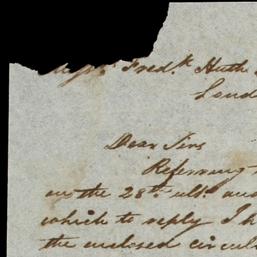 Fredk. Huth
Lond
Dear Sirs
Referring
on the 28th ulto. and
which to reply I h
the enclosed circul